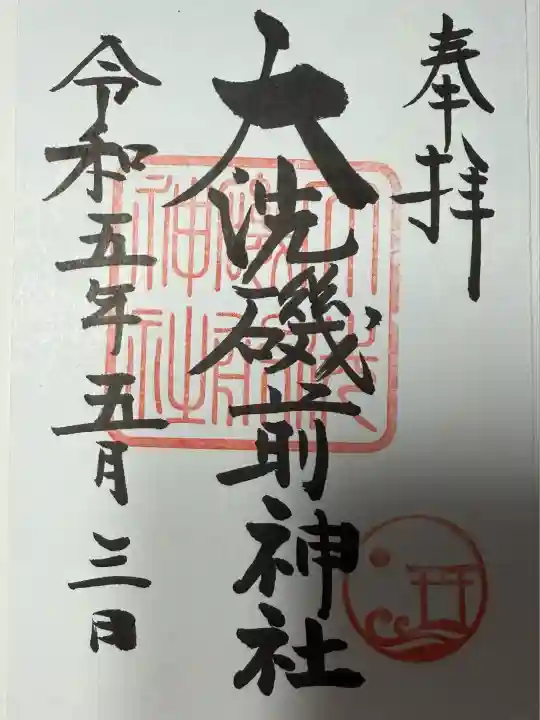 奉拝
大洗磯前神社
令和五年五月三日
大洗磯前神社